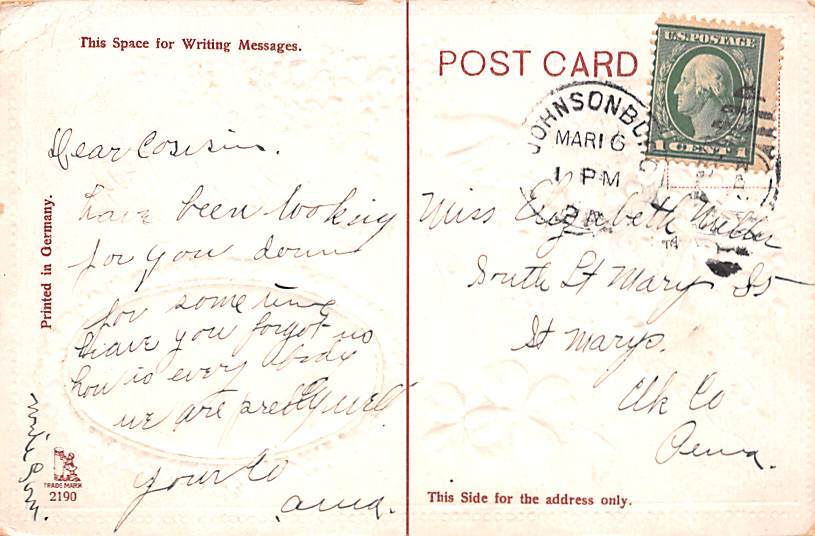 This Space for Writing Messages.
Dear Cousin.
have been looking
for you down
for some time
have you forgot us
how is every body
we are pretty well
your Co
Printed in Germany.
TRADE MARK
2190
POST CARD
U.S. POSTAGE
1 CENT 1
JOHNSONBURG
MAR 16
1 PM
Miss Elizabeth
South St Marys St
St Marys.
Elk Co
Penna.
This Side for the address only.